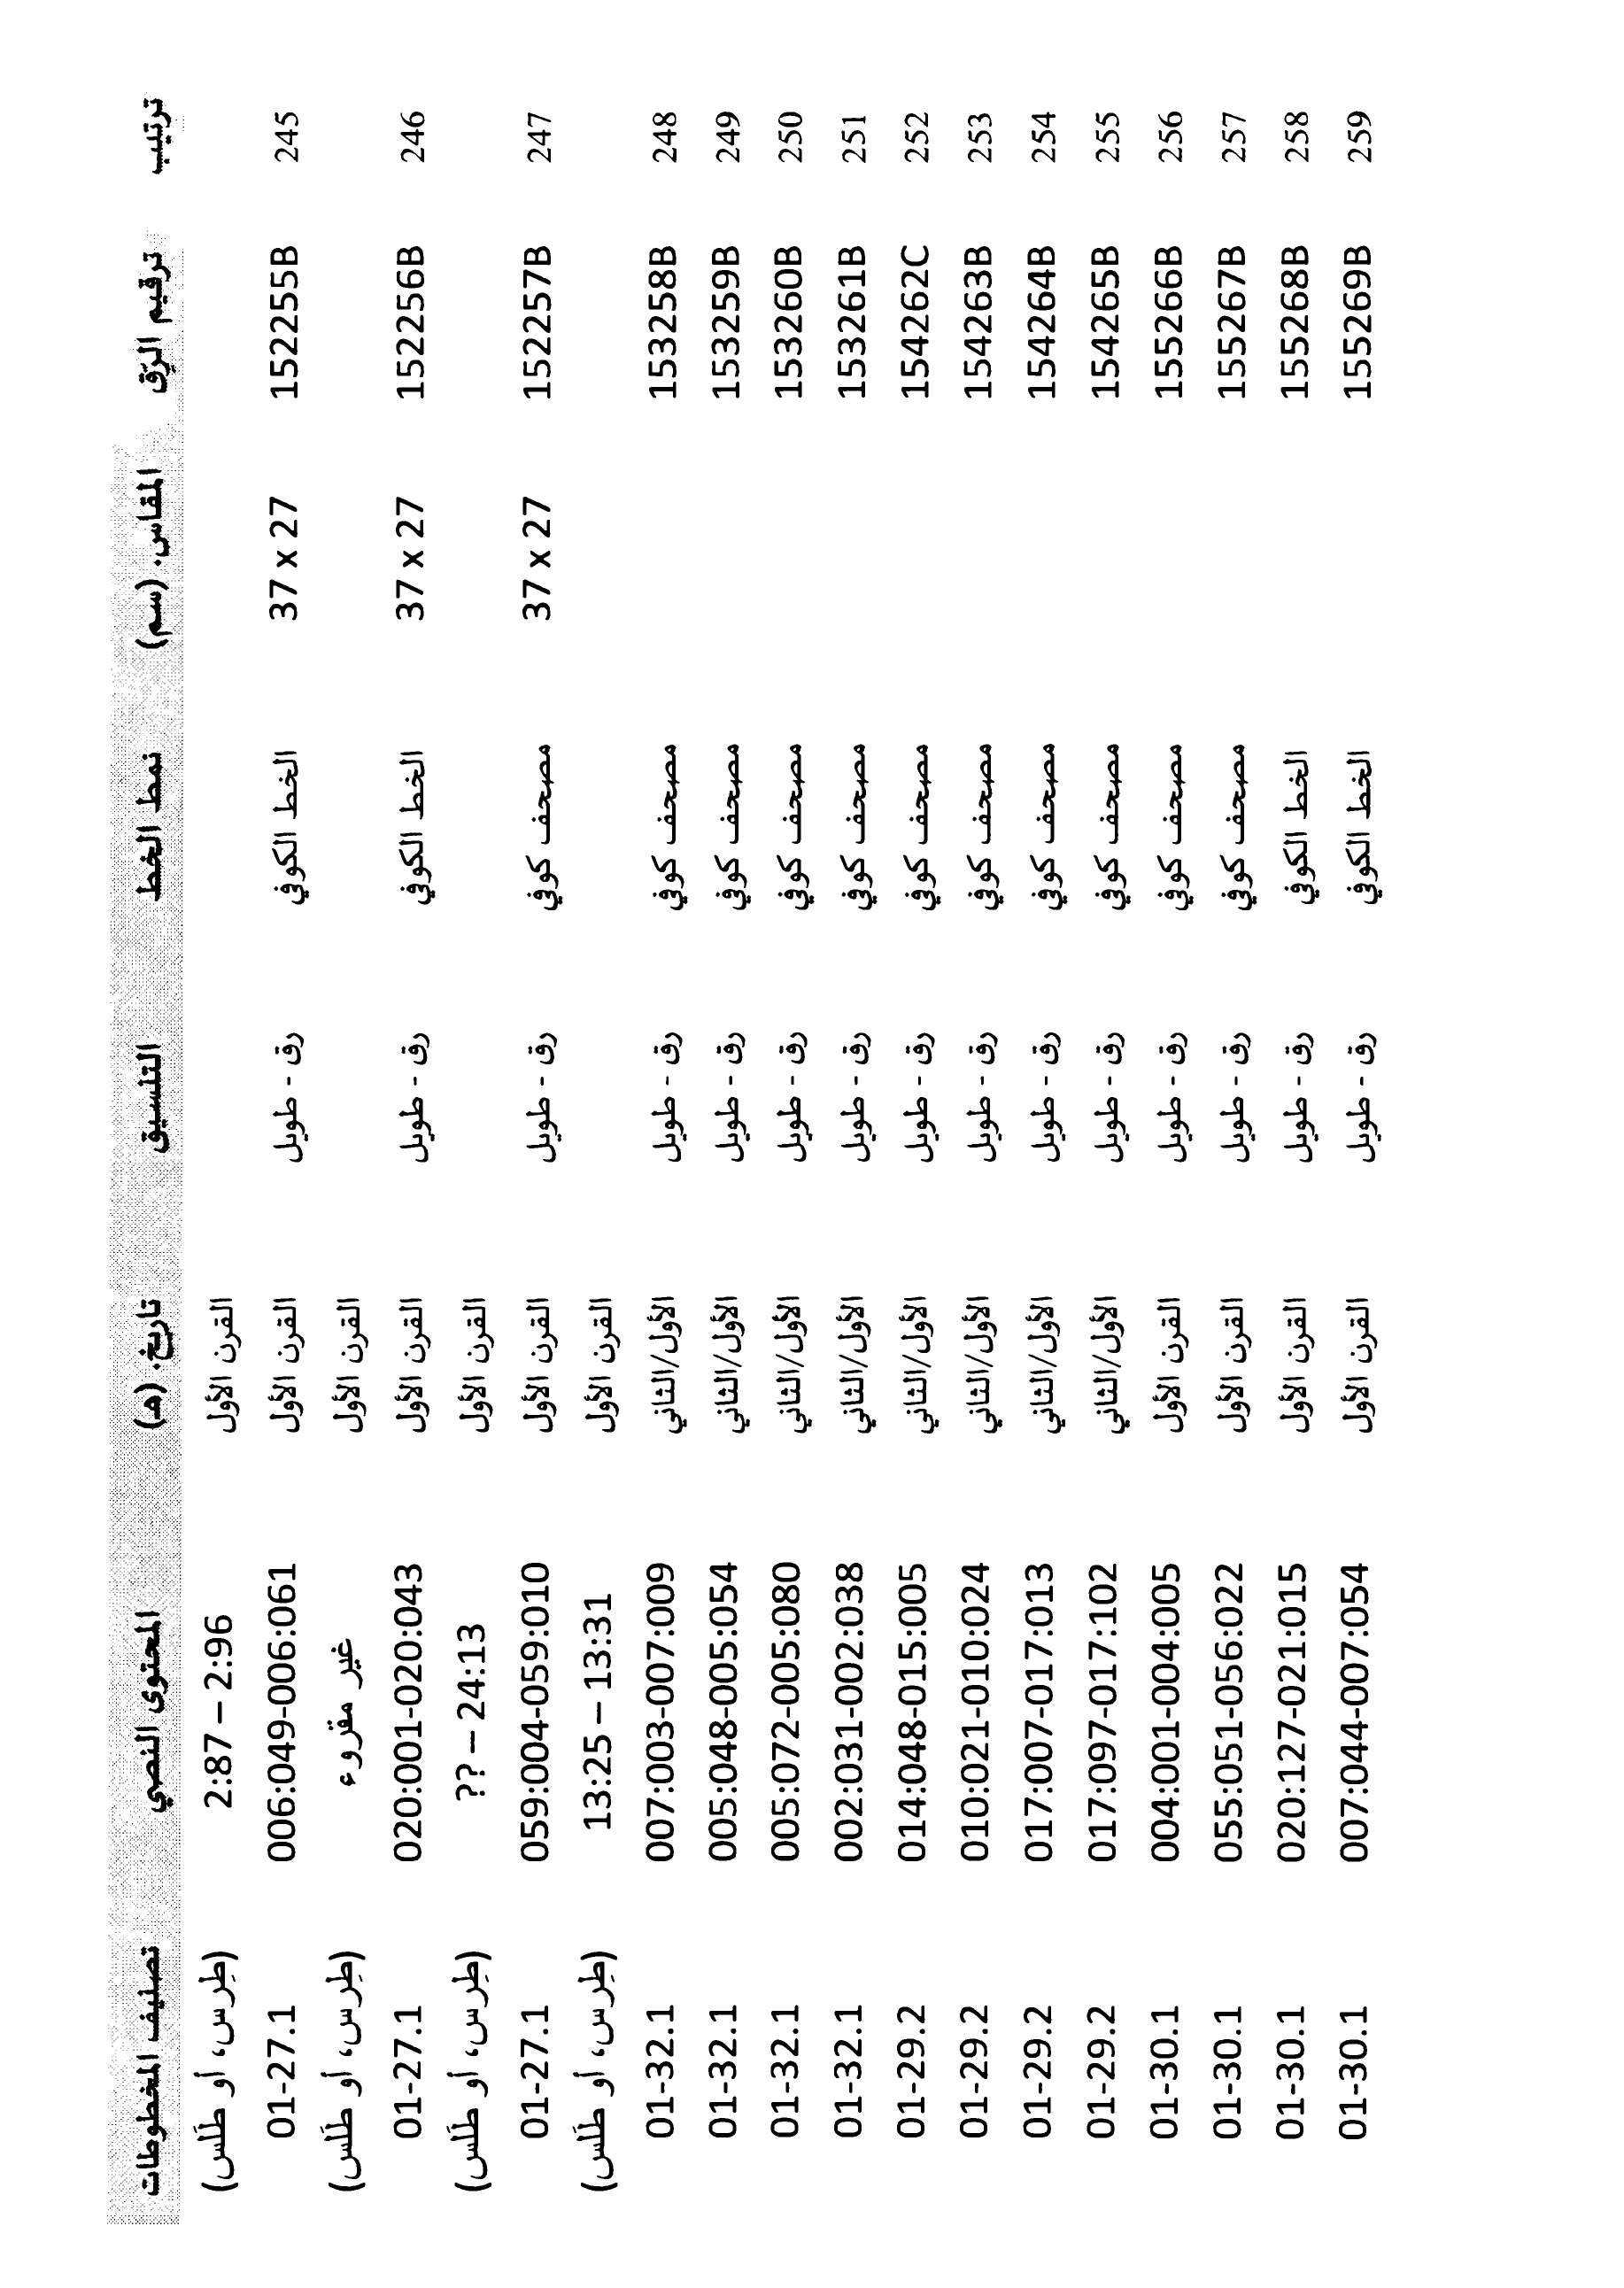 ترتيب ترقيم الرَّق المقاس. (سم) نمط الخط التنسيق تاريخ. (هـ) المحتوى النصي تصنيف المخطوطات
القرن الأول 2:87 – 2:96 (طِرس، أو طَلس)
245 152255B 37 x 27 الخط الكوفي رق - طويل القرن الأول 006:049-006:061 01-27.1
القرن الأول غير مقروء (طِرس، أو طَلس)
246 152256B 37 x 27 الخط الكوفي رق - طويل القرن الأول 020:001-020:043 01-27.1
القرن الأول ?? – 24:13 (طِرس، أو طَلس)
247 152257B 37 x 27 مصحف كوفي رق - طويل القرن الأول 059:004-059:010 01-27.1
القرن الأول 13:25 – 13:31 (طِرس، أو طَلس)
248 153258B مصحف كوفي رق - طويل الأول/الثاني 007:003-007:009 01-32.1
249 153259B مصحف كوفي رق - طويل الأول/الثاني 005:048-005:054 01-32.1
250 153260B مصحف كوفي رق - طويل الأول/الثاني 005:072-005:080 01-32.1
251 153261B مصحف كوفي رق - طويل الأول/الثاني 002:031-002:038 01-32.1
252 154262C مصحف كوفي رق - طويل الأول/الثاني 014:048-015:005 01-29.2
253 154263B مصحف كوفي رق - طويل الأول/الثاني 010:021-010:024 01-29.2
254 154264B مصحف كوفي رق - طويل الأول/الثاني 017:007-017:013 01-29.2
255 154265B مصحف كوفي رق - طويل الأول/الثاني 017:097-017:102 01-29.2
256 155266B مصحف كوفي رق - طويل القرن الأول 004:001-004:005 01-30.1
257 155267B مصحف كوفي رق - طويل القرن الأول 055:051-056:022 01-30.1
258 155268B الخط الكوفي رق - طويل القرن الأول 020:127-021:015 01-30.1
259 155269B الخط الكوفي رق - طويل القرن الأول 007:044-007:054 01-30.1